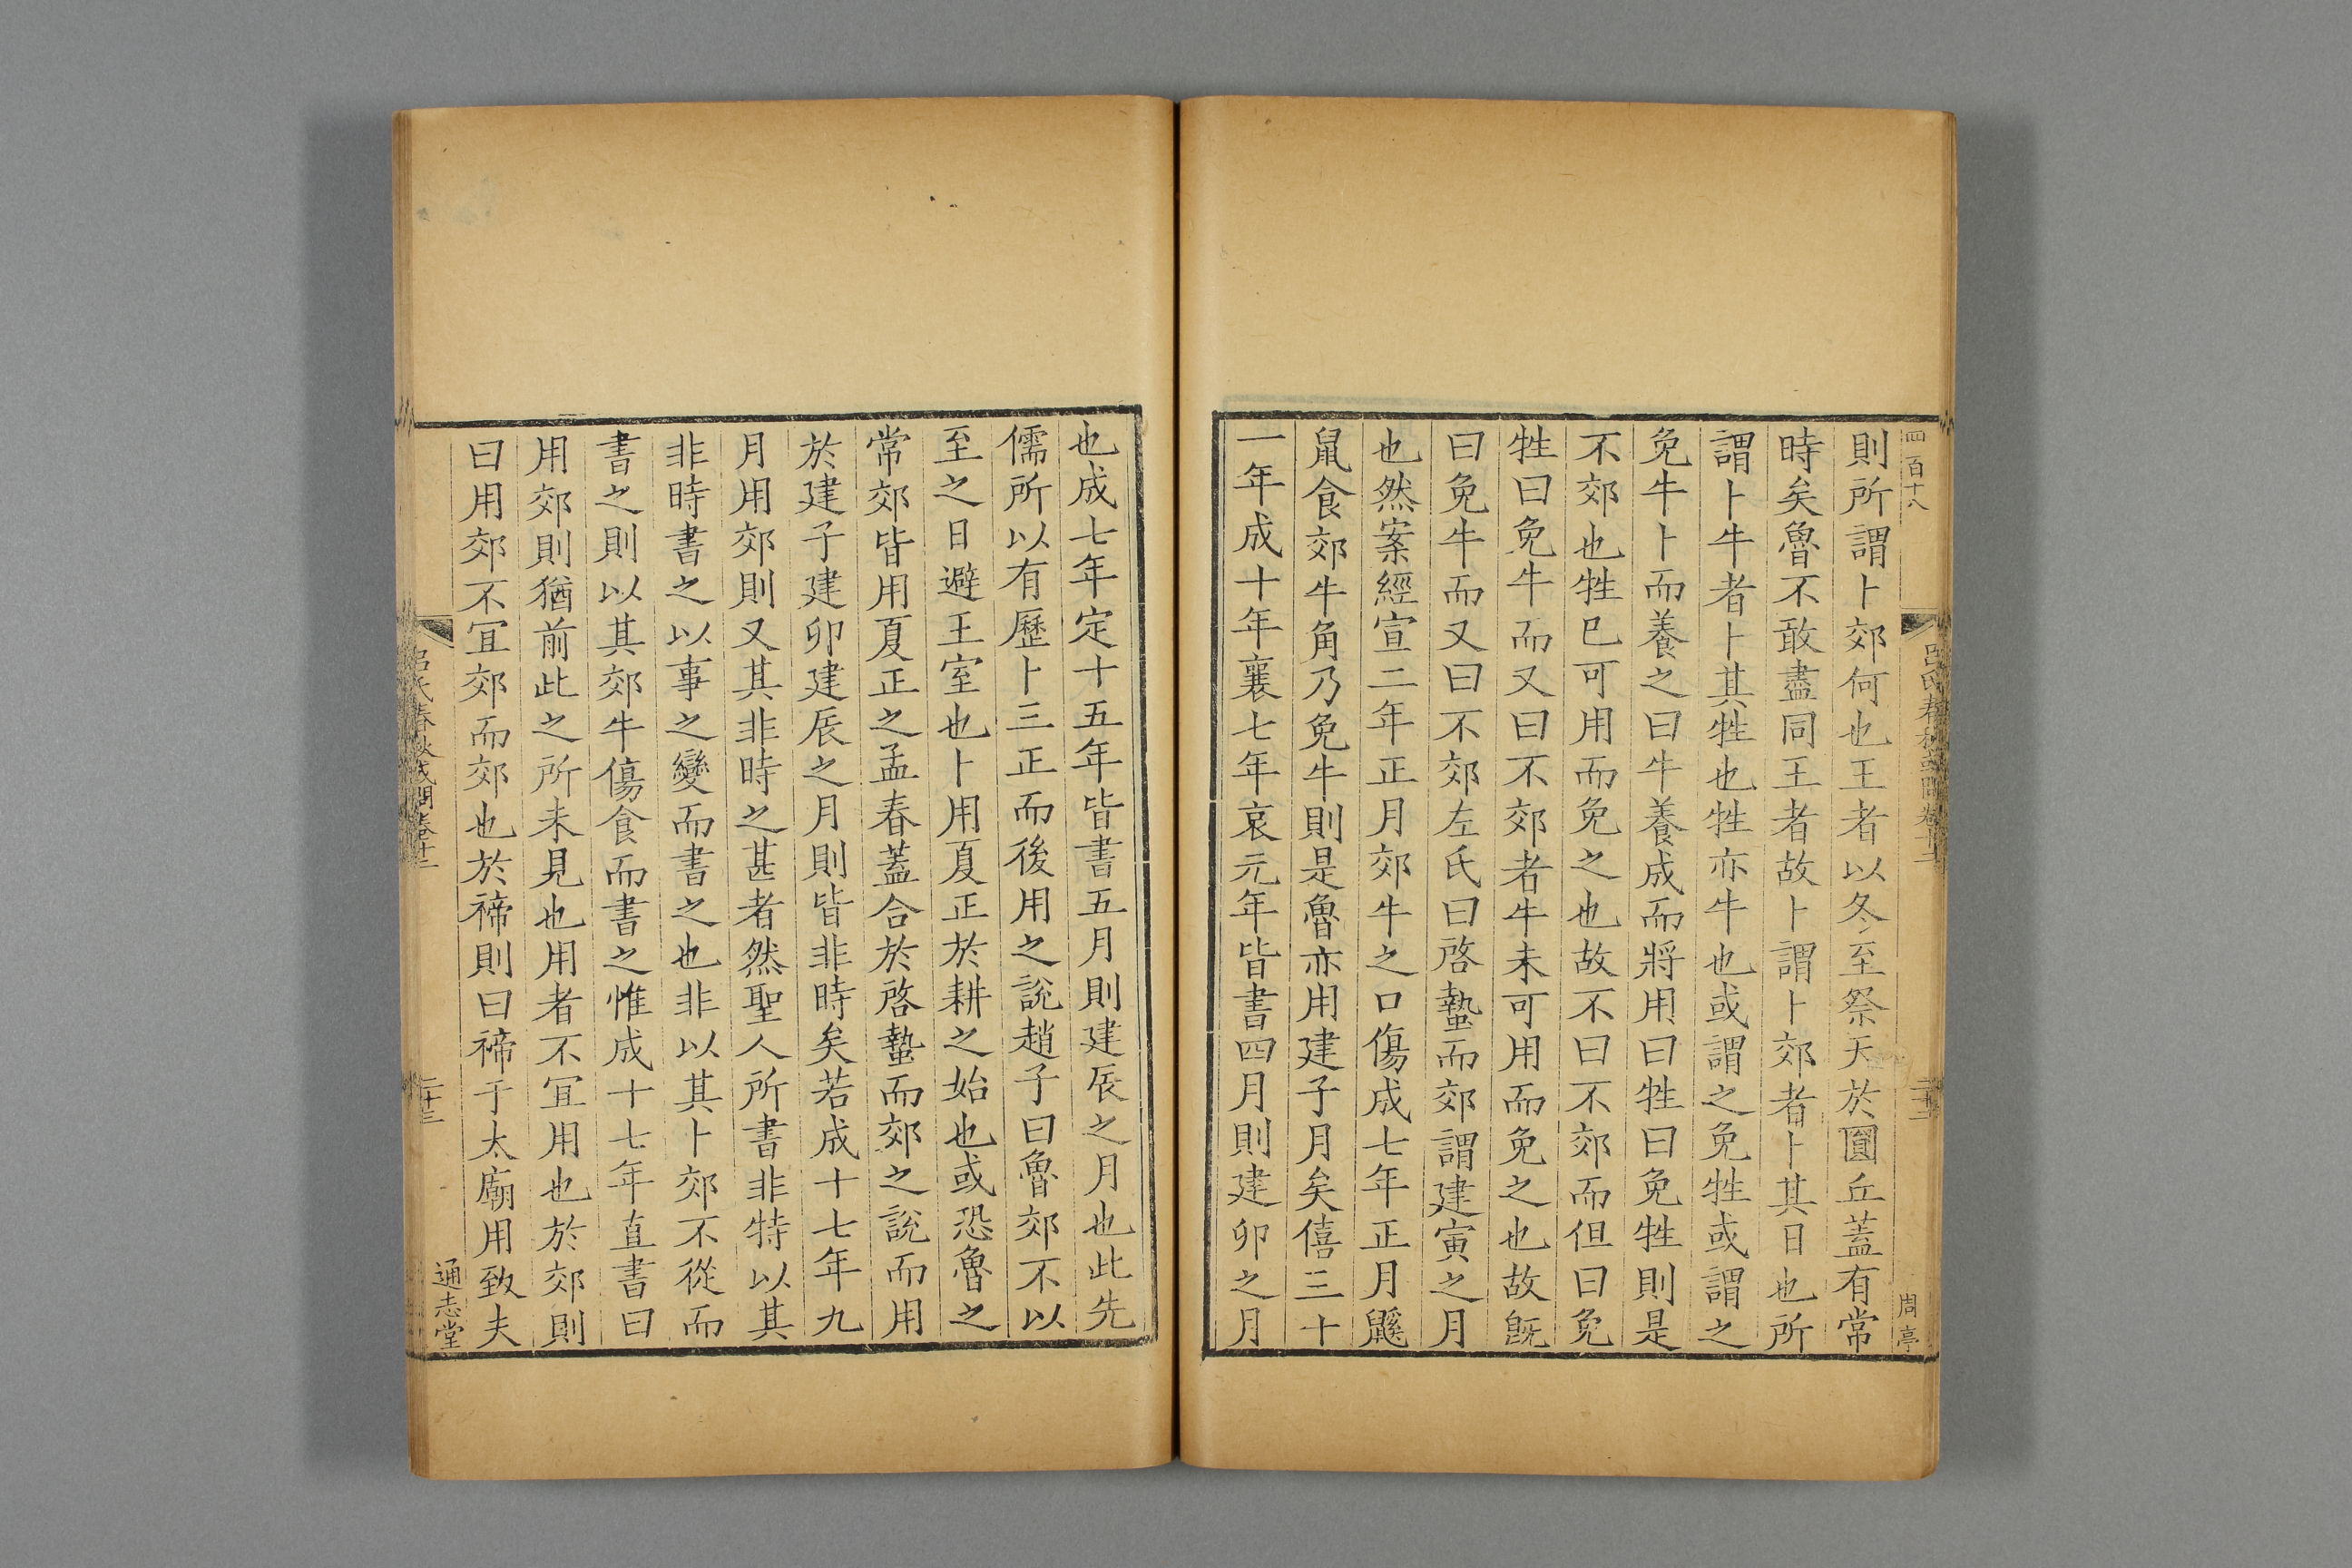 四百十八
呂氏春秋或問卷十二
二十二
周亭
則所謂卜郊何也王者以冬至祭天於圓丘蓋有常
時矣魯不敢盡同王者故卜謂卜郊者卜其日也所
謂卜牛者卜其牲也牲亦牛也或謂之免牲或謂之
免牛卜而養之曰牛養成而將用曰牲曰免牲則是
不郊也牲已可用而免之也故不曰不郊而但曰免
牲曰免牛而又曰不郊者牛未可用而免之也故旣
曰免牛而又曰不郊左氏曰啓蟄而郊謂建寅之月
也然案經宣二年正月郊牛之口傷成七年正月鼷
鼠食郊牛角乃免牛則是魯亦用建子月矣僖三十
一年成十年襄七年哀元年皆書四月則建卯之月
也成七年定十五年皆書五月則建辰之月也此先
儒所以有歷卜三正而後用之說趙子曰魯郊不以
至之日避王室也卜用夏正於耕之始也或恐魯之
常郊皆用夏正之孟春蓋合於啓蟄而郊之說而用
於建子建卯建辰之月則皆非時矣若成十七年九
月用郊則又其非時之甚者然聖人所書非特以其
非時書之以事之變而書之也非以其卜郊不從而
書之則以其郊牛傷食而書之惟成十七年直書曰
用郊則猶前此之所未見也用者不宜用也於郊則
曰用郊不宜郊而郊也於禘則曰禘于太廟用致夫
呂氏春秋或問卷十二
二十三
通志堂